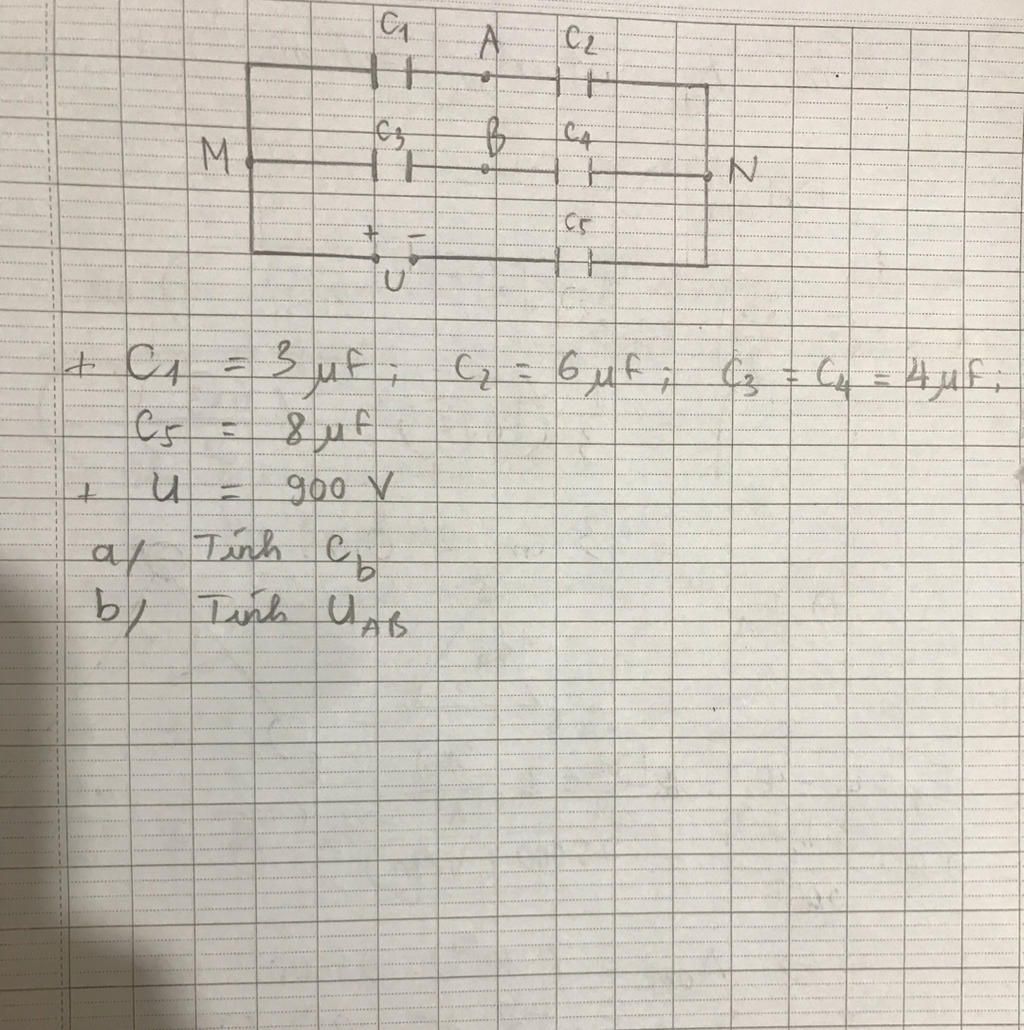 C1 A C2
C3 B C4
M N
+ - C5
U
+ C1 = 3 μF; C2 = 6 μF; C3 = C4 = 4 μF;
C5 = 8 μF
+ U = 900 V
a/ Tính Cb
b/ Tính UAB